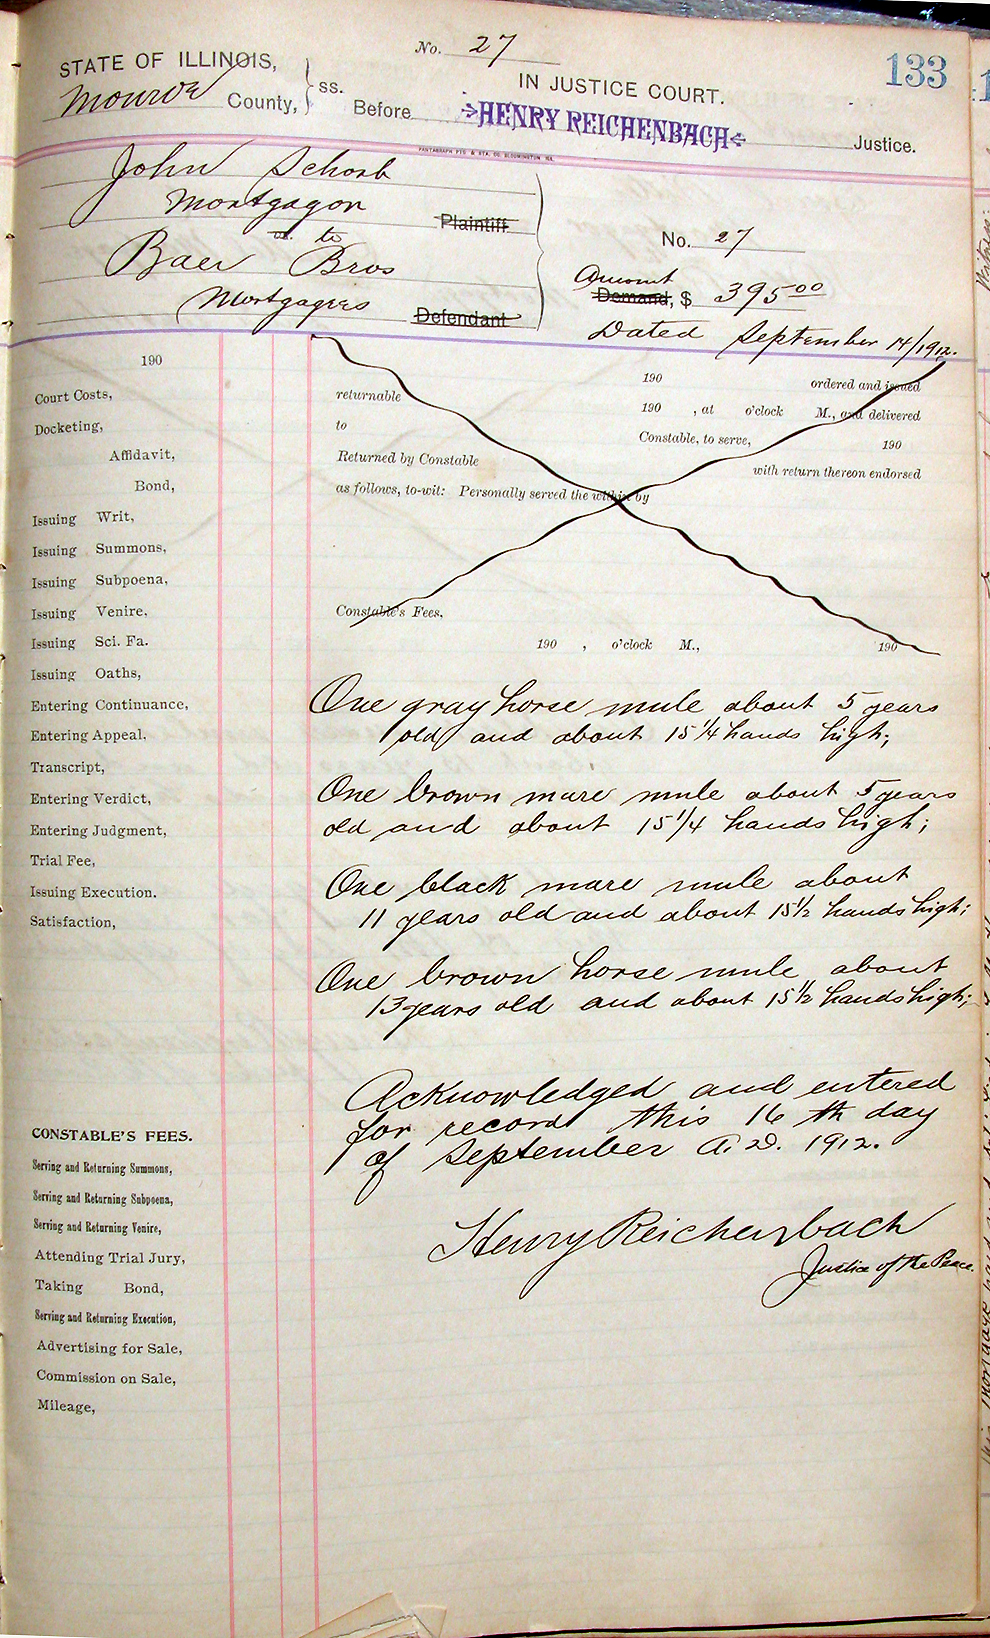 No. 27
133
STATE OF ILLINOIS,
Monroe County, ss.
IN JUSTICE COURT.
Before HENRY REICHENBACH Justice.
PANTAGRAPH PTG. & STA. CO. BLOOMINGTON ILL.
John Schorb
Mortgagor
Plaintiff
vs. to
Baer Bros
Mortgagees
Defendant
No. 27
Amount
Demand, $ 395 00
Dated September 14/1912.
190
Court Costs,
Docketing,
Affidavit,
Bond,
Issuing Writ,
Issuing Summons,
Issuing Subpoena,
Issuing Venire,
Issuing Sci. Fa.
Issuing Oaths,
Entering Continuance,
Entering Appeal,
Transcript,
Entering Verdict,
Entering Judgment,
Trial Fee,
Issuing Execution.
Satisfaction,
CONSTABLE'S FEES.
Serving and Returning Summons,
Serving and Returning Subpoena,
Serving and Returning Venire,
Attending Trial Jury,
Taking Bond,
Serving and Returning Execution,
Advertising for Sale,
Commission on Sale,
Mileage,
190 ordered and issued
returnable 190 , at o'clock M., and delivered
to Constable, to serve, 190
Returned by Constable with return thereon endorsed
as follows, to-wit: Personally served the within by
Constable's Fees,
190 , o'clock M., 190
One gray horse mule about 5 years
old and about 15 1/4 hands high;
One brown mare mule about 5 years
old and about 15 1/4 hands high;
One black mare mule about
11 years old and about 15 1/2 hands high;
One brown horse mule about
13 years old and about 15 1/2 hands high;
Acknowledged and entered
for record this 16 th day
of September A.D. 1912.
Henry Reichenbach
Justice of the Peace.